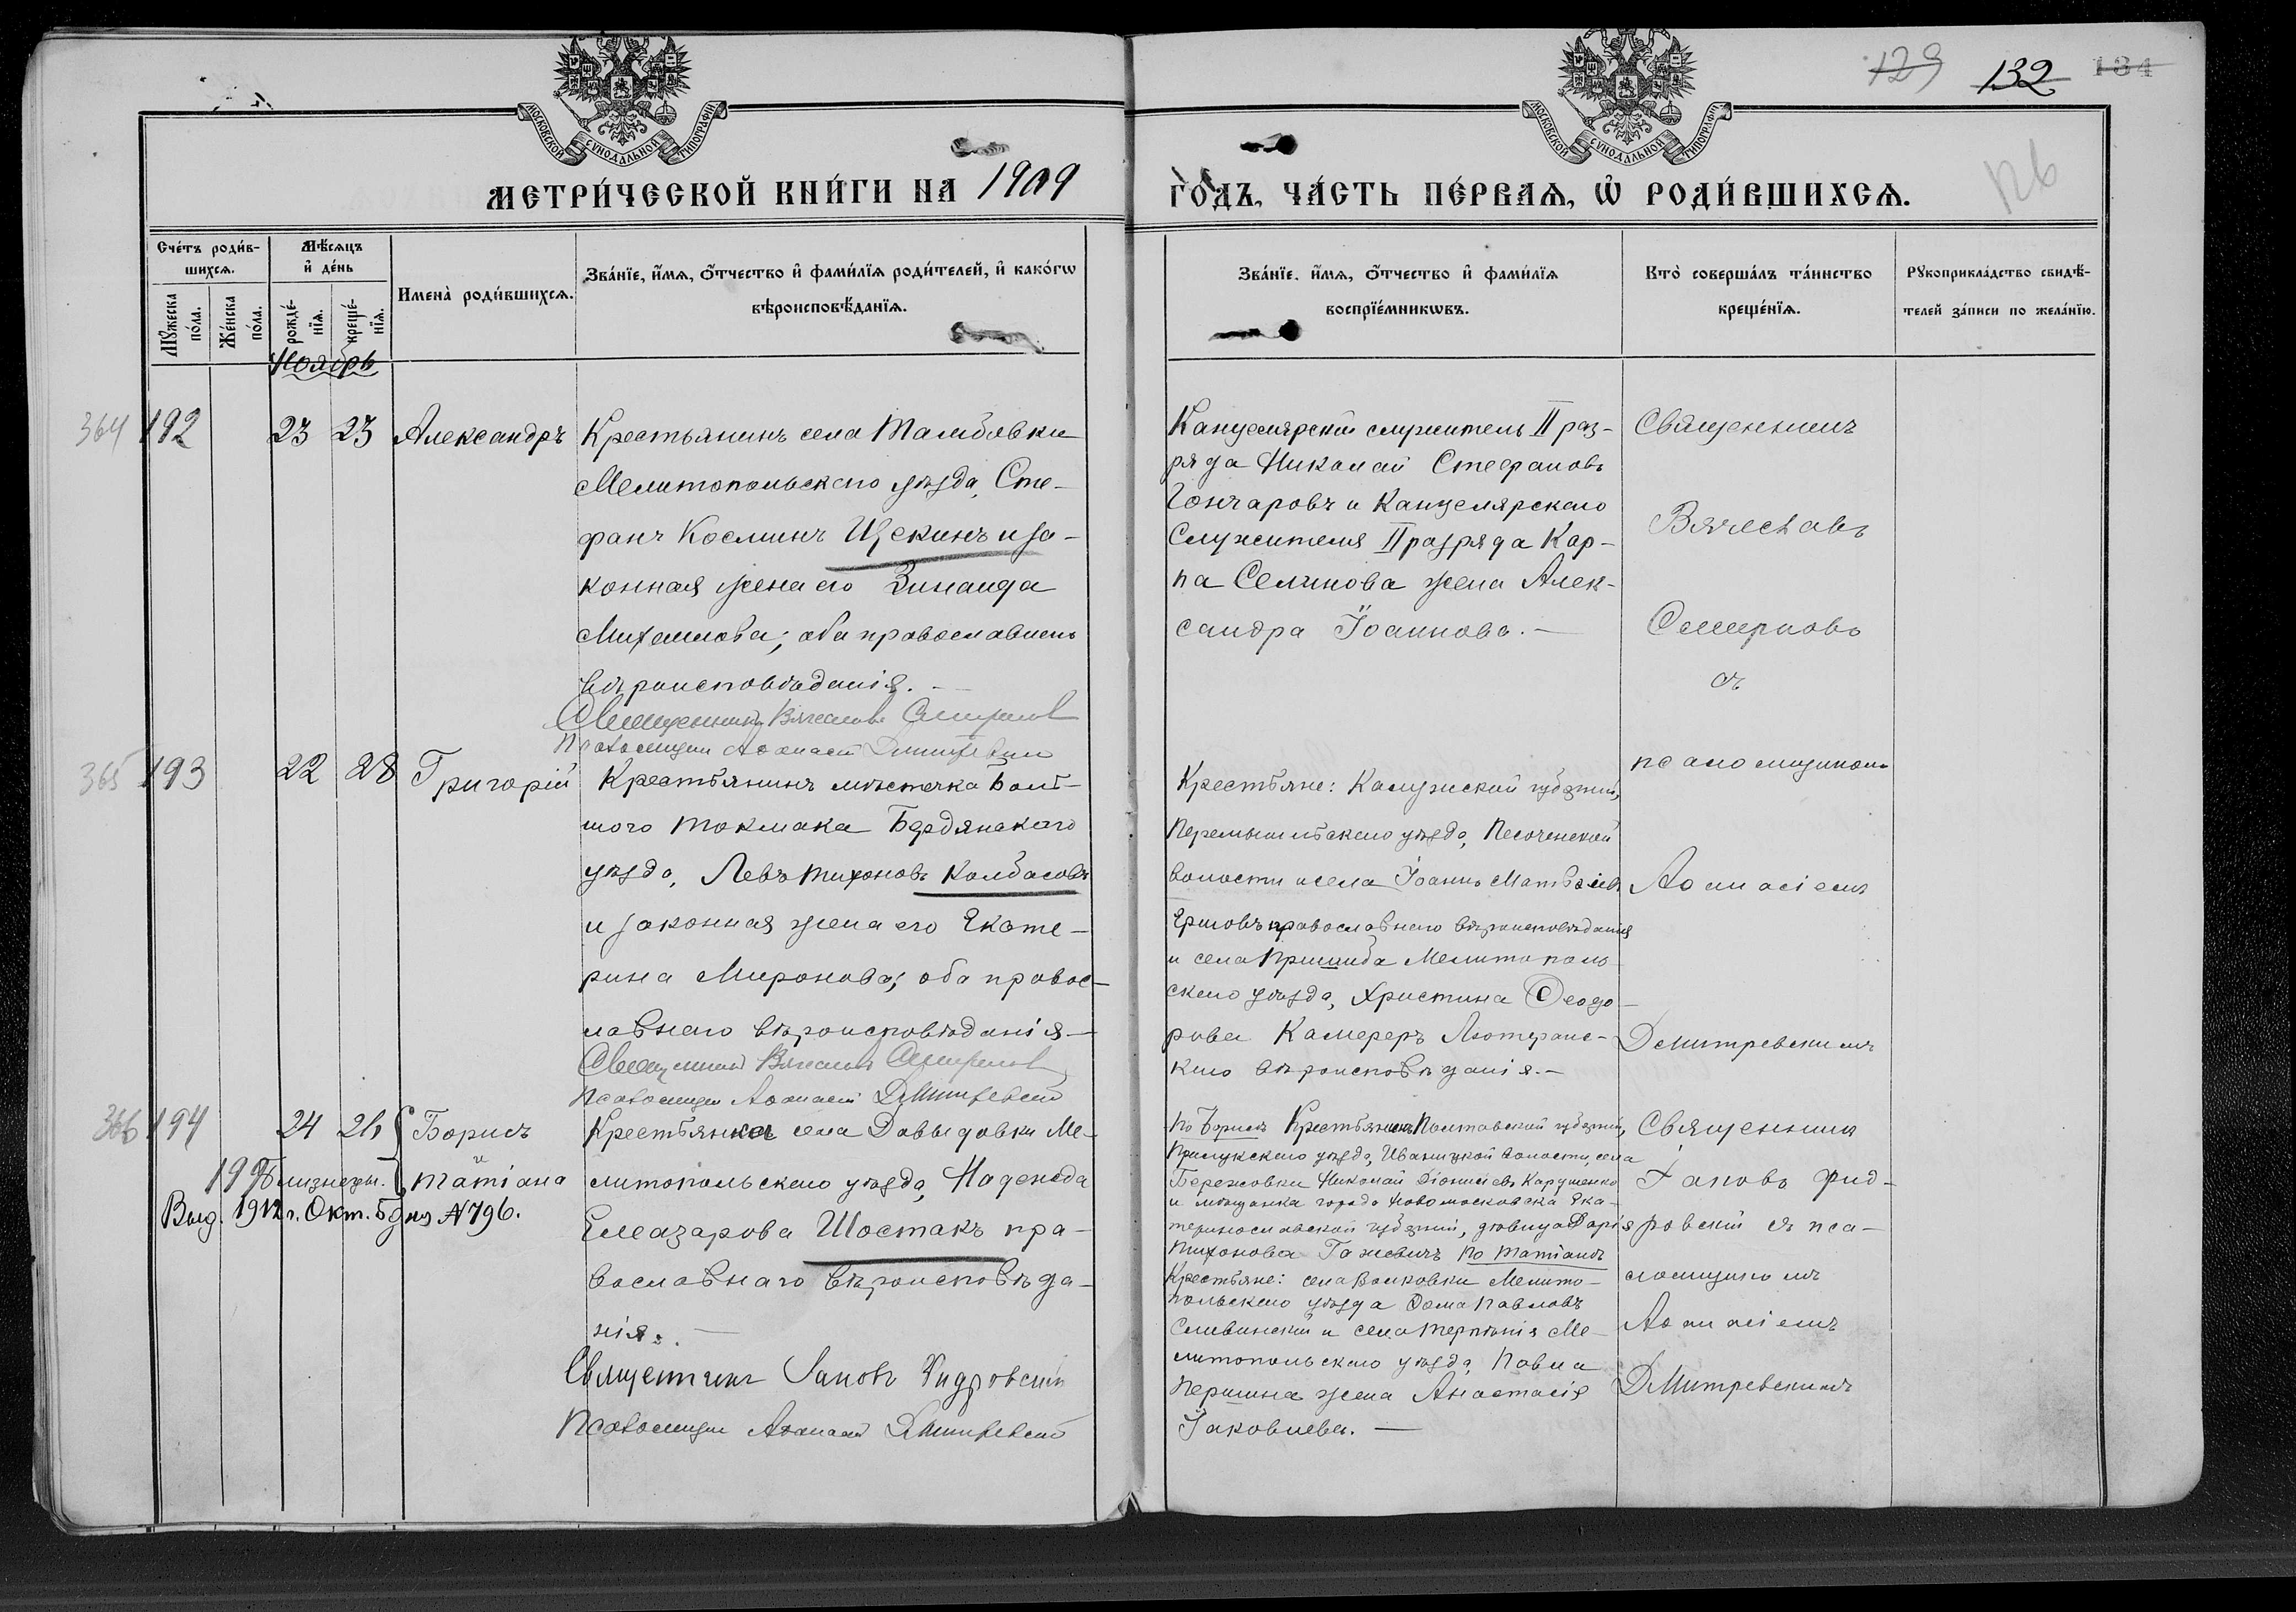 129 132 134
126
МОСКОВСКОЙ СѴНОДАЛЬНОЙ ТИПОГРАФІИ
МОСКОВСКОЙ СѴНОДАЛЬНОЙ ТИПОГРАФІИ
МЕТРИ́ЧЕСКОЙ КНИ́ГИ НА 1909
ГО́ДЪ, ЧА́СТЬ ПЕ́РВАѦ, Ѡ҆ РОДИ́ВШИХСѦ.
Сче́тъ роди́в-
шихсѧ.
Мꙋ́жеска по́ла.
Же́нска по́ла.
Мѣ́сѧцъ и҆ де́нь
рожде́-
нїѧ.
креще́-
нїѧ.
Имена̀ роди́вшихсѧ.
Зва́нїе, и҆́мѧ, о҆́тчество и҆ фами́лїѧ роди́телей, и҆ како́гѡ
вѣроисповѣ́данїѧ.
Зва́нїе, и҆́мѧ, о҆́тчество и҆ фами́лїѧ
воспрїе́мникѡвъ.
Кто̀ соверша́лъ та́инство
креще́нїѧ.
Рꙋкоприкла́дство свидѣ́-
телей за́писи по жела́нїю.
Ноябрь
364 192 23 23 Александръ
Крестьянинъ села Тамбовки
Мелитопольскаго уѣзда, Сте-
фанъ Косминъ Щекинъ и за-
конная жена его Зинаида
Михаилова; оба православнаго
вѣроисповѣданія. —
Священникъ Вячеславъ Смирнов
Псаломщикъ Аѳанасій Дмитревскій
Канцелярскій служитель II раз-
ряда Николай Стефановъ
Гончаровъ и Канцелярскаго
Служителя II разряда Кар-
па Селинова жена Алек-
сандра Іоаннова. —
Священникъ
Вячеславъ
Смирновъ
съ
псаломщикомъ
Аѳанасіемъ
Дмитревскимъ
365 193 22 28 Григорій
Крестьянинъ мѣстечка Боль-
шого Токмака Бердянскаго
уѣзда, Левъ Тихоновъ Колбасовъ
и законная жена его Екате-
рина Миронова; оба правос-
лавнаго вѣроисповѣданія —
Священникъ Вячеславъ Смирнов
Псаломщикъ Аѳанасій Дмитревскій
Крестьяне: Калужской губерніи,
Перемышльскаго уѣзда, Песоченской
волости и села Іоаннъ Матвѣевъ
Ершовъ православнаго вѣроисповѣданія
и села Пришиба Мелитополь-
скаго уѣзда, Христина Ѳеодо-
рова Камереръ Лютеранс-
каго вѣроисповѣданія. —
366 194 24 26 Борисъ
и
199 Близнецы. Татіана
Выд. 1912 г. Окт. 5 дня № 796.
Крестьянка села Давыдовки Ме-
литопольскаго уѣзда, Надежда
Елеазарова Шостакъ пра-
вославнаго вѣроисповѣда-
нія. —
Священникъ Іаковъ Фидровскій
Псаломщикъ Аѳанасій Дмитревскій
По Борисѣ Крестьянинъ Полтавской губерніи,
Прилукскаго уѣзда, Иваницкой волости, села
Бережовки Николай Діонисіевъ Карушенко
и мѣщанка города Новомосковска Ека-
теринославской губерніи, дѣвица Дарія
Тихонова Гажевичъ По Татіанѣ
Крестьяне: села Волковки Мелито-
польскаго уѣзда Ѳома Павловъ
Сливинскій и села Терпѣнія Ме-
литопольскаго уѣзда, Павла
Першина жена Анастасія
Іаковлева. —
Священникъ
Іаковъ Фид-
ровскій съ пса-
ломщикомъ
Аѳанасіемъ
Дмитревскимъ